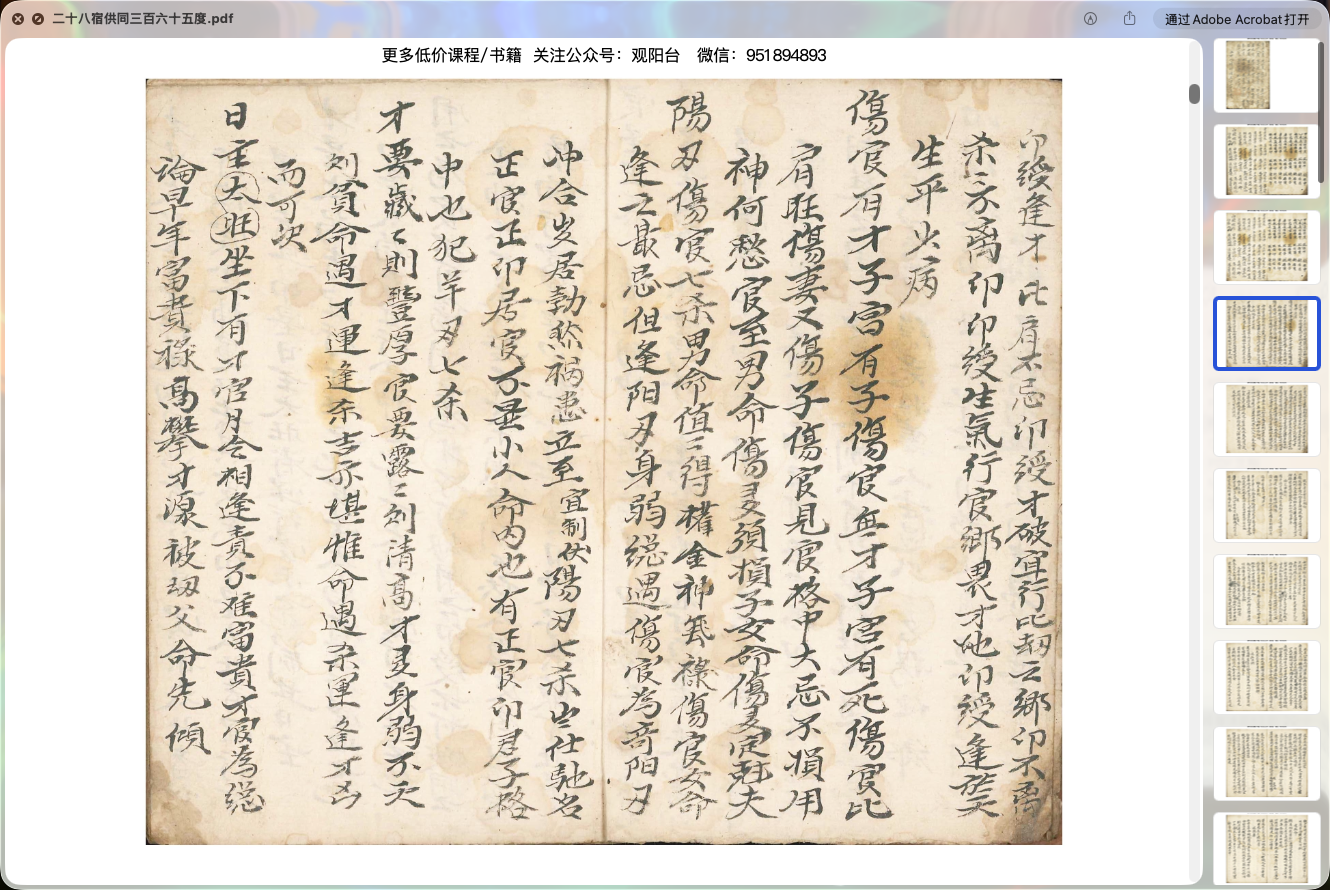 二十八宿供同三百六十五度.pdf
通过Adobe Acrobat打开
更多低价课程/书籍 关注公众号：观阳台 微信：951894893
印綬逢才比肩不忌印綬才破宜行比刼云鄉印不离
杀不离印印綬生氣行官鄉畏才地印綬逢
生平少病
傷官有才子宮有子傷官無才子宮有死傷官比
肩旺傷妻又傷子傷官見官格中大忌不損用
神何愁官至男命傷多須損子女命傷多定尅夫
陽刃傷官七杀男命值〻得權金神氣祿傷官女命
逢之最忌但逢阳刃身弱总遇傷官為奇阳刃
冲合岁居勃然祸患立至宜制伏陽刃七杀岀仕馳名
正官正印居官不是小人命内也有正官印君子格
中也犯羊刃七杀
才要藏〻則豐厚官要露〻則清高才多身弱不天
則貧命遇才運逢杀吉亦堪惟命遇杀運逢才凶
而可决
日主太旺坐下有才官月令相逢贵不难富貴才官為总
論早年富貴祿馬攀才源被刼父命先傾